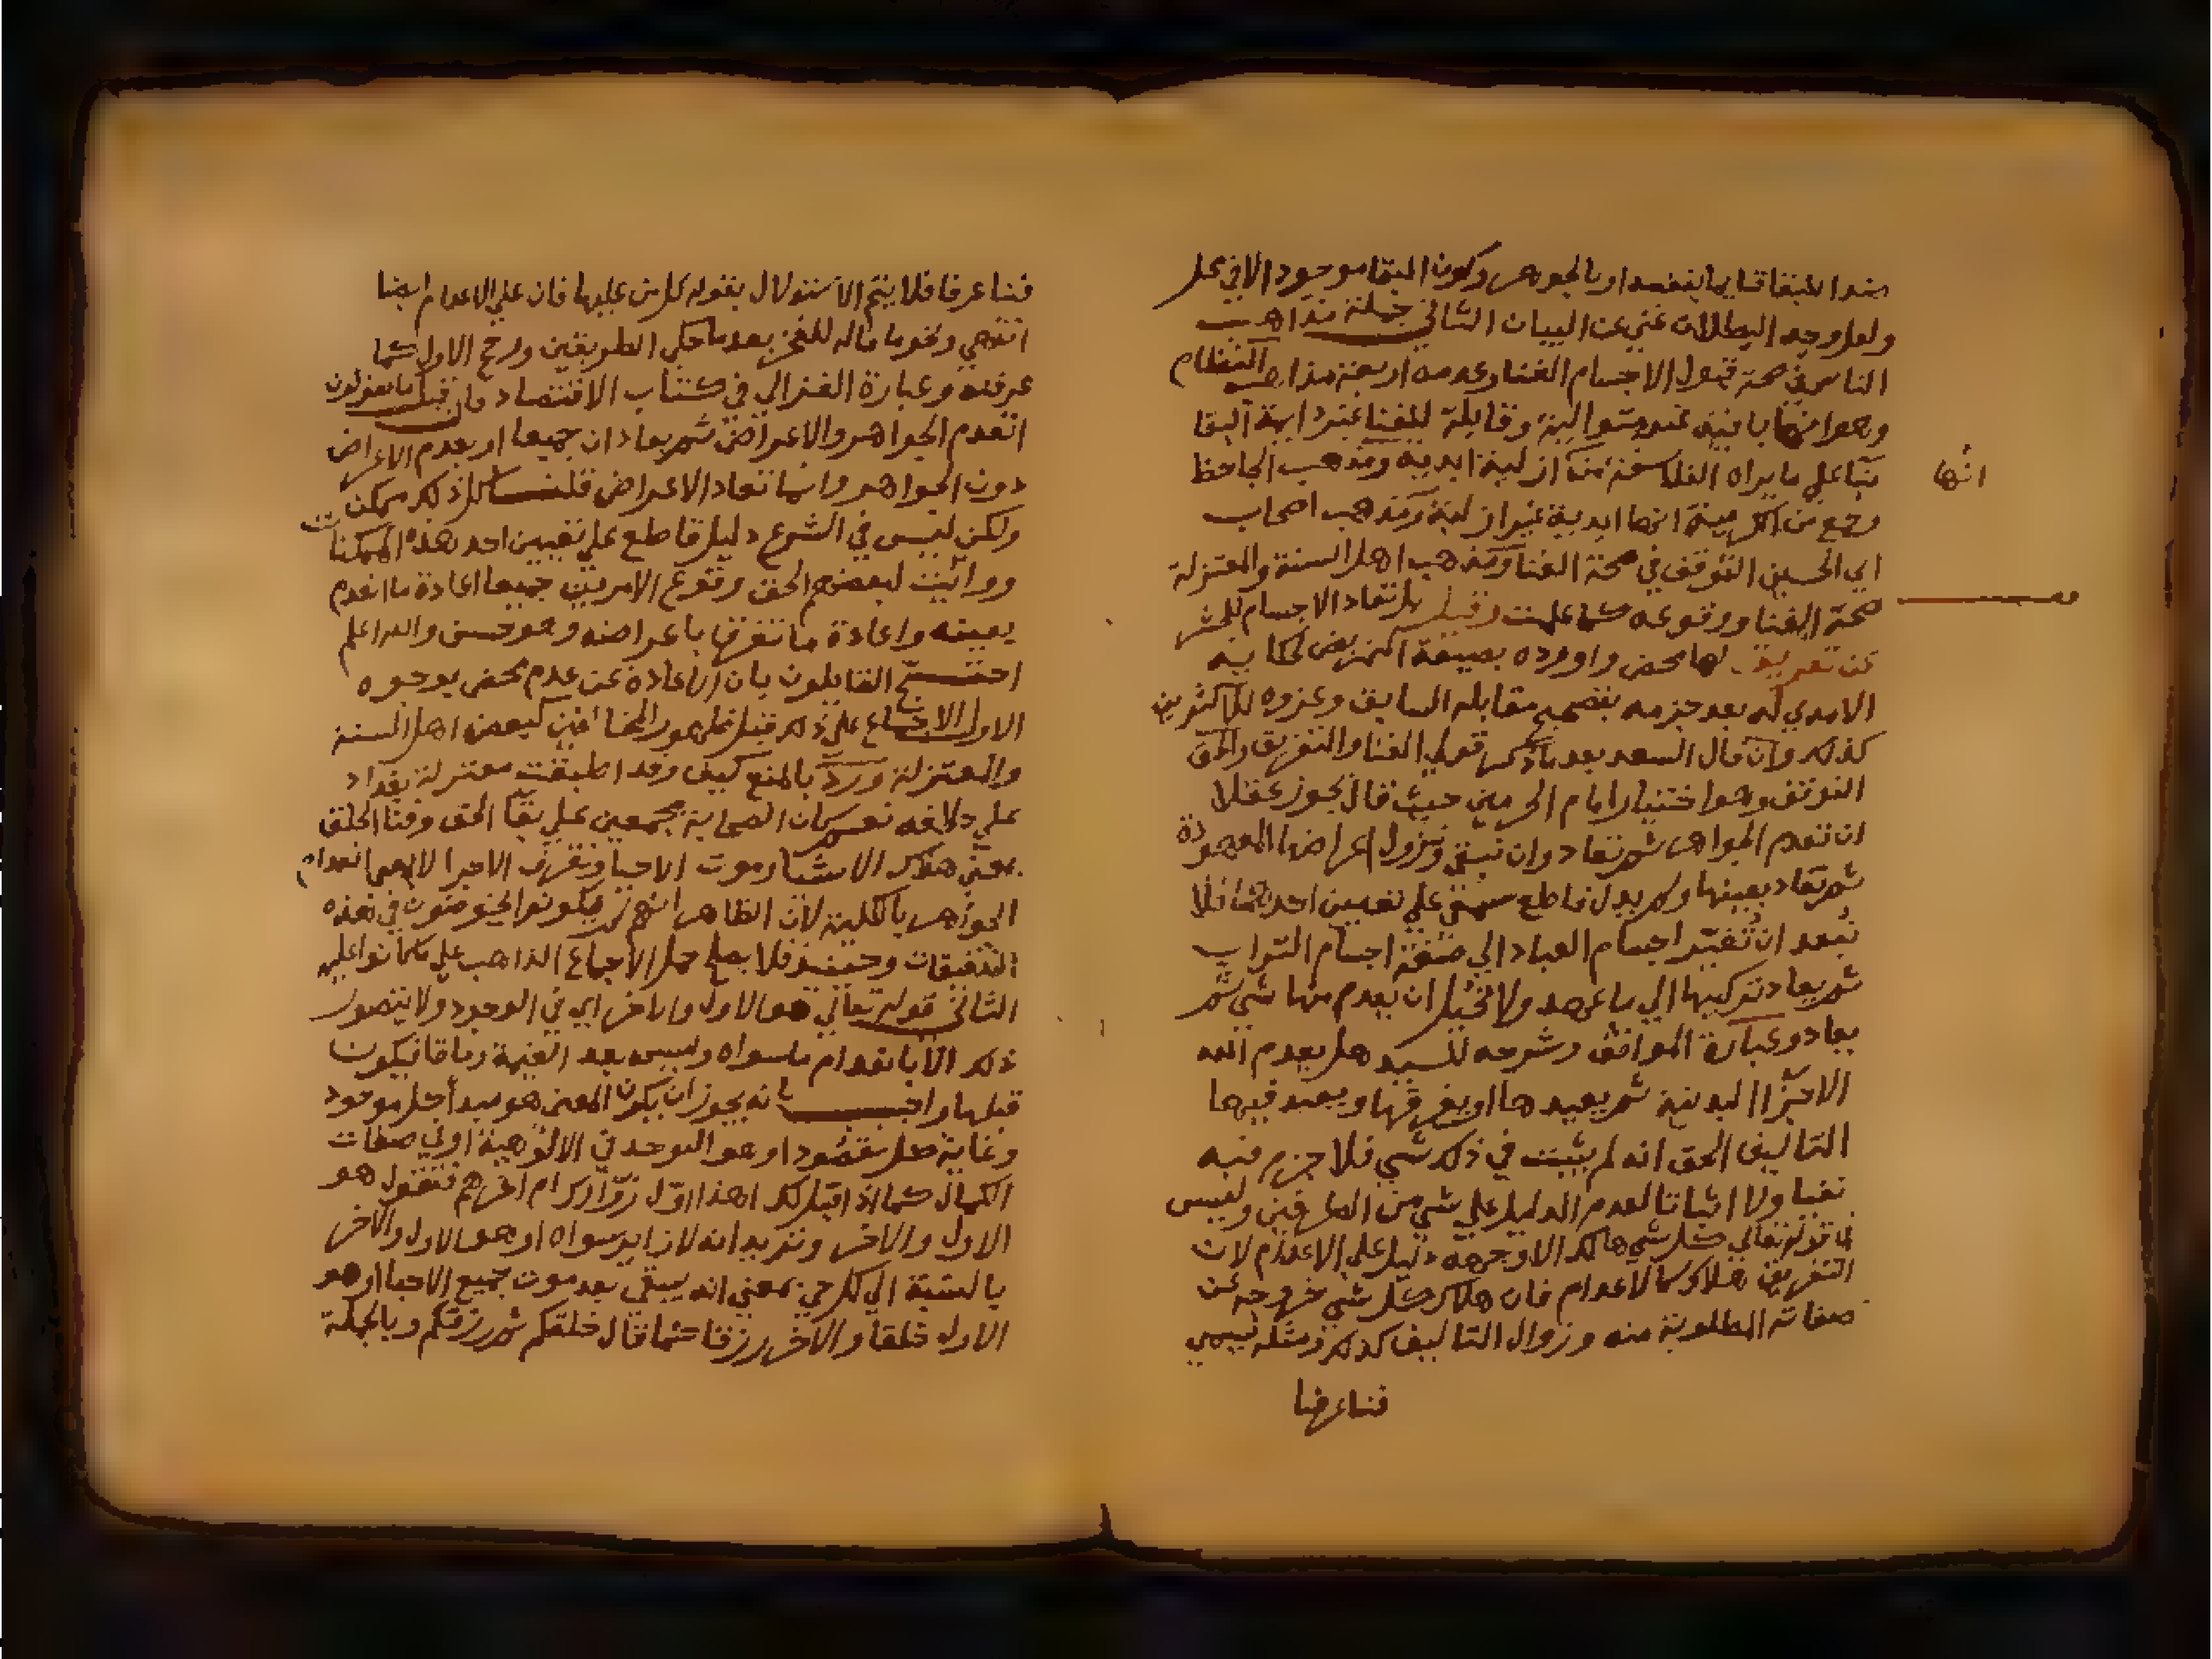 ضد البقا قايما بنفسه او بالجوهر وكون البقا موجود الا في محل
ولعل وجه البطلان غني عن البيان الثاني جملة مذاهب
الناس في صحة قبول الاجسام الفنا وعدمه اربعة مذاهب النظام
وهو انها باقية غير متوالية وقابلة للفنا غير دايمة البقا
بنا علي ما يراه الفلاسفة ازلية ابدية ومذهب الجاحظ
انها
وجمع من الكرامية انها ابدية غير ازلية ومذهب اصحاب
ابي الحسين التوقف في صحة الفنا ومذهب اهل السنة والمعتزلة
صحة الفنا ووقوعه كما علمت وقيل بل تعاد الاجسام للحشر
عن تفريق لها محض واورده بصيغة التمريض لحكاية
الامدي له بعد جزمه بتصحيح مقابله السابق وعزوه للاكثرين
كذلك وان قال السعد بعد ما ذكر قولي الفنا والتفريق والحق
التوقف وهو اختيار امام الحرمين حيث قال يجوز عقلا
ان تعدم الجواهر ثم تعاد وان تبقي وتزول اعراضها المعهودة
ثم تعاد بعينها ولم يدل قاطع سمعي علي تعيين احدهما فلا
يبعد ان تغير اجسام العباد الي صفة اجسام التراب
ثم يعاد تركيبها الي ما عهد ولا نحيل ان يعدم منها شي ثم
يعاد وعبارة المواقف وشرحه للسيد هل يعدم الله
الاجزا البدنية ثم يعيدها او يفرقها ويعيد فيها
التاليف الحق انه لم يثبت في ذلك شي فلا جزم فيه
نفيا ولا اثباتا لعدم الدليل علي شي من الطرفين وليس
في قوله تعالي كل شي هالك الا وجهه دليل علي الاعدام لان
التفريق هلاك كالاعدام فان هلاك كل شي خروجه عن
صفاته المطلوبة منه وزوال التاليف كذلك ومثله يسمي
فنا عرفا
فنا عرفا فلا يتم الاستدلال بقوله كل من عليها فان علي الاعدام ايضا
انتهي ونحو ما قاله للفخر بعد ما حكي الطريقين ورجح الاول كما
عرفته وعبارة الغزالي في كتاب الاقتصاد فان قيل ما تقولون
اتعدم الجواهر والاعراض ثم يعادان جميعا او يعدم الاعراض
دون الجواهر وانما تعاد الاعراض قلنا كل ذلك ممكن
ولكن ليس في الشرع دليل قاطع علي تعيين احد هذه الممكنات
ورايت لبعضهم الحق وقوع الامرين جميعا اعادة ما انعدم
بعينه واعادة ما تفرق باعراضه وهو حسن والله اعلم
احتج القايلون بان الاعادة عن عدم محض بوجوه
الاول الاجماع علي ذلك قبل ظهور المخالفين كبعض اهل السنة
والمعتزلة ورد بالمنع كيف وقد اطبقت معتزلة بغداد
علي خلافه نعم كان الصحابة مجمعين علي بقا الحق وفنا الخلق
بمعني هلاك الاشيا وموت الاحيا وتفرق الاجزا لا بمعني انعدام
الجواهر بالكلية لان الظاهر انهم لم يكونوا يخوضون في هذه
التدقيقات وحينيذ فلا يصلح حمل الاجماع الذاهب علي ما كانوا عليه
الثاني قوله تعالي هو الاول والاخر اي في الوجود ولا يتصور
ذلك الا بانعدام ما سواه وليس بعد القيمة وفاقا فيكون
قبلها واجيب بانه يجوز ان يكون المعني هو مبدأ كل موجود
وغاية كل مقصود او هو التوحد في الالوهية او في صفات
الكمال كما اذا قيل لك اهذا اول زوارك ام اخرهم فتقول هو
الاول والاخر وتريد انه لا زاير سواه او هو الاول والاخر
بالنسبة الي كل حي بمعني انه يبقي بعد موت جميع الاحيا او هو
الاول خلقا والاخر رزقا كما قال خلقكم ثم رزقكم وبالجملة